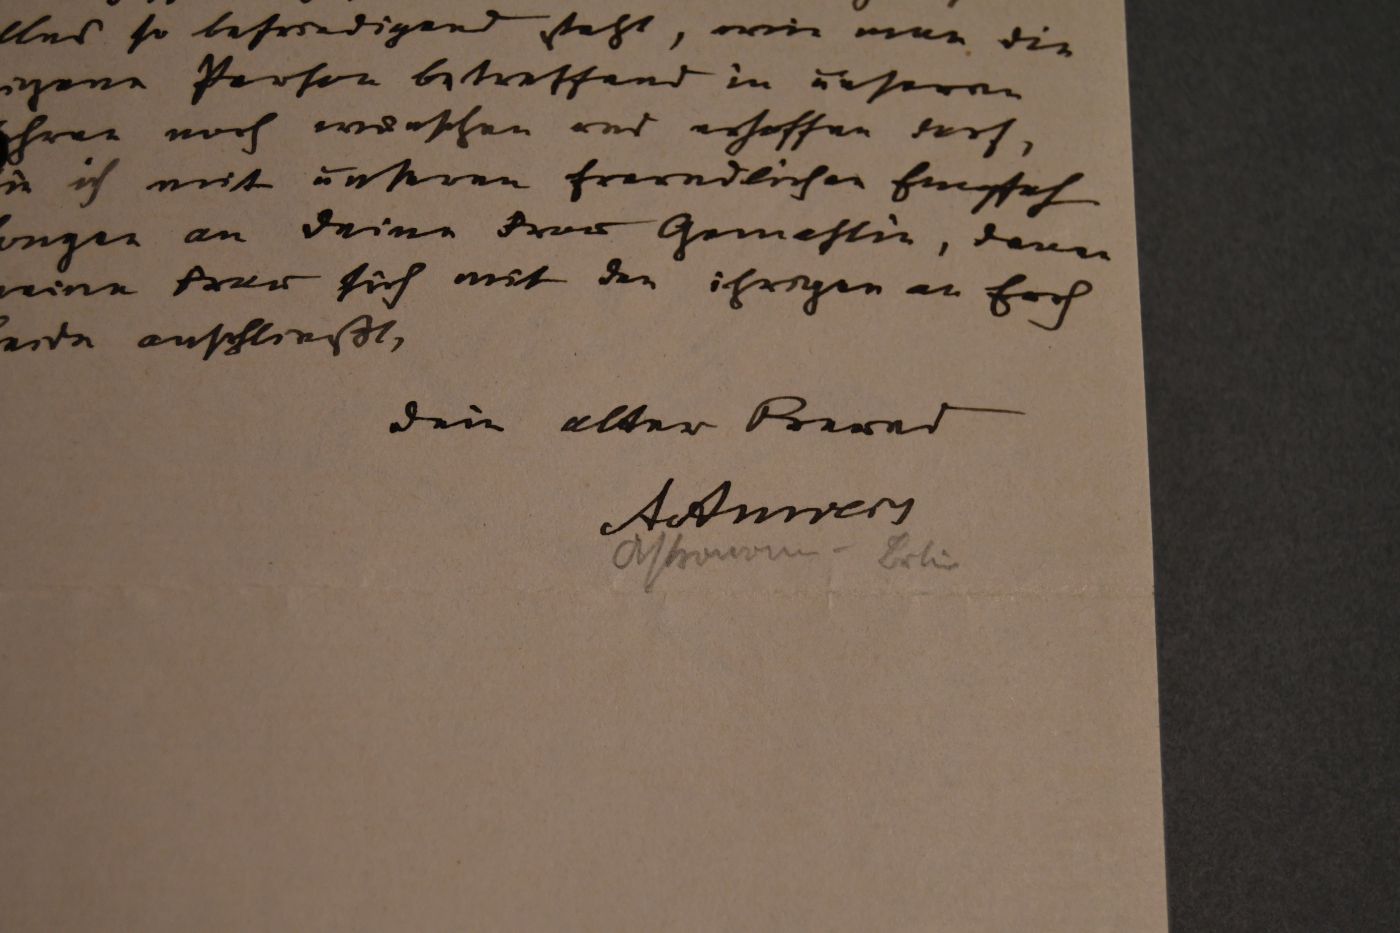 alles so befriedigend steht, wie man die
eigene Person betreffend in unseren
Jahren noch wünschen und erhoffen darf,
bin ich mit unseren freundlichen Empfeh
lungen an Deine Frau Gemahlin, denen
meine Frau sich mit den ihrigen an Euch
beide anschließt,
Dein alter Freund
A. Auwers
Astronom - Berlin